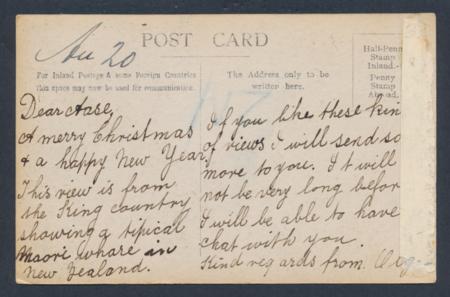 Au 20
POST CARD
For Inland Postage & some Foreign Countries
This space may now be used for communication.
The Address only to be
written here.
Half-Penn
Stamp
Inland.-
Penny
Stamp
Abroad.
Dear Aase,
A merry Christmas
& a happy New Year.
This view is from
the King country
showing a tipical
Maori whare in
New Zealand.
If you like these kin
of views i will send so
more to you. It will
not be very long befor
I will be able to have
chat with you.
Kind regards from